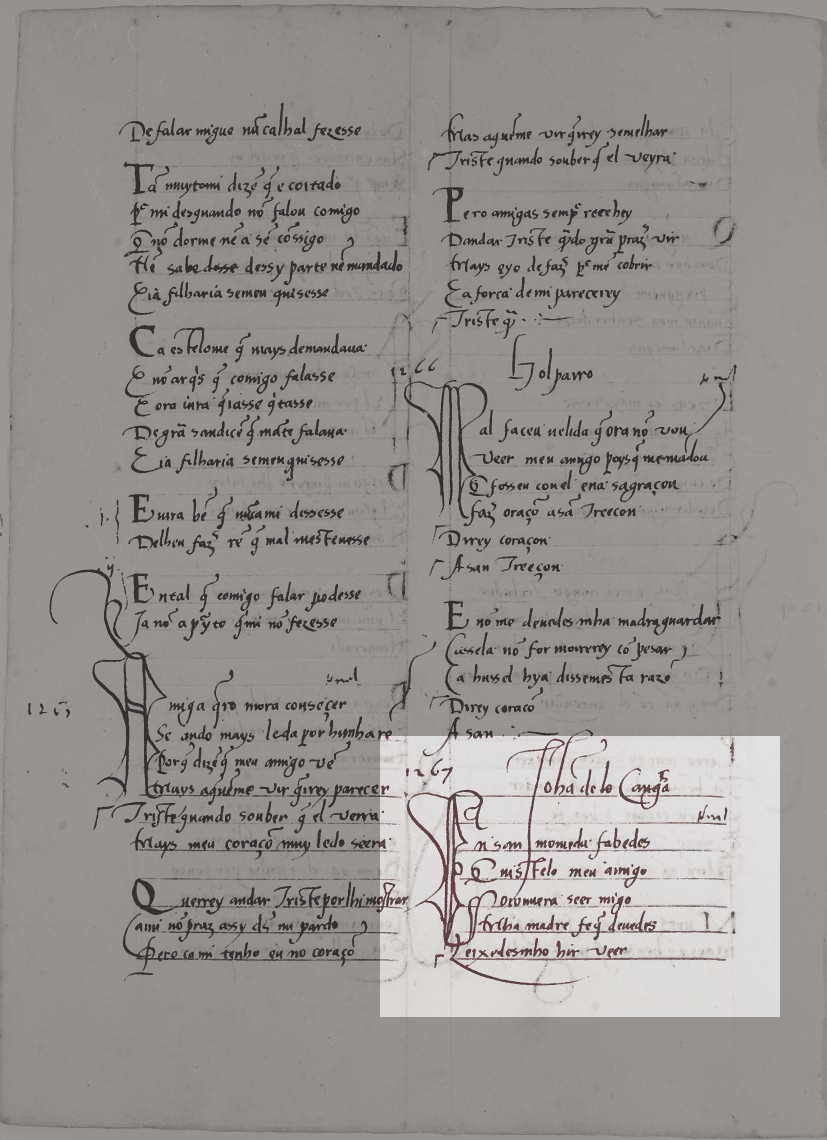 De falar migue nūcalhal fezesse
Tā muytomi dizē q̄ e coitado
Pr mi desquando nō falou comigo
Q̄ nō dorme nē a sē cōssigo
Nē sabe desse dessy parte nē mandado
E ia filharia semeu quisesse
Ca estelome q̄ mays demandaua
E nō ar q̄s q̄ comigo falasse
E ora iura q̄
De grā sandice q̄ mate falaua
E ia filharia semeu quisesse
E uira bē q̄ nūcami dissesse
Delheu faz rē q̄ mal mesteuesse
En tal q̄ comigo falar podesse
Ja nō a pyto q̄mi nō fezesse
1265
Amiga q̄ro mora cousecer
Se ando mays leda por hunha rē
Porq̄ dizē q̄ meu amigo uē
Mays aquēme uir q̄rey parecer
Triste quando souber q̄ el uerria
Mays meu coraçō muy ledo seera
Querrey andar Triste por lhi mostrar
Ca mi nō praz assy ds̄ nu pardo
Pero ca mi tenho eu no coraçō
Mays aquēme uir q̄rey semelhar
Triste quando souber q̄ el ueyra
Pero amigas semp reechey
Dandar Triste q̄do grā praz uir
Mays eyo de faz pr me cobrir
E a forca de mi parecerey
Triste q̄
1266
Golparro
Mal faceu uelida q̄ ora nō uou
Veer meu amigo poys q̄ me mādou
Q̄ fosseu con el ena sagraçon
faz oraçō a san Treeçon
Direy coraçon
A san Treeçon
E nō me deuedes mha madr a guardar
Ca sse la nō for moirerey cō pesar
Ca hussel hya dissemesta razō
Direy coracō
A san
1267
Joha de lo Cangā
En san momeda sabedes
Q̄ uistelo meu amigo
Oiouuera seer migo
Mha madre fe q̄ deuedes
Leixedesmho hir ueer